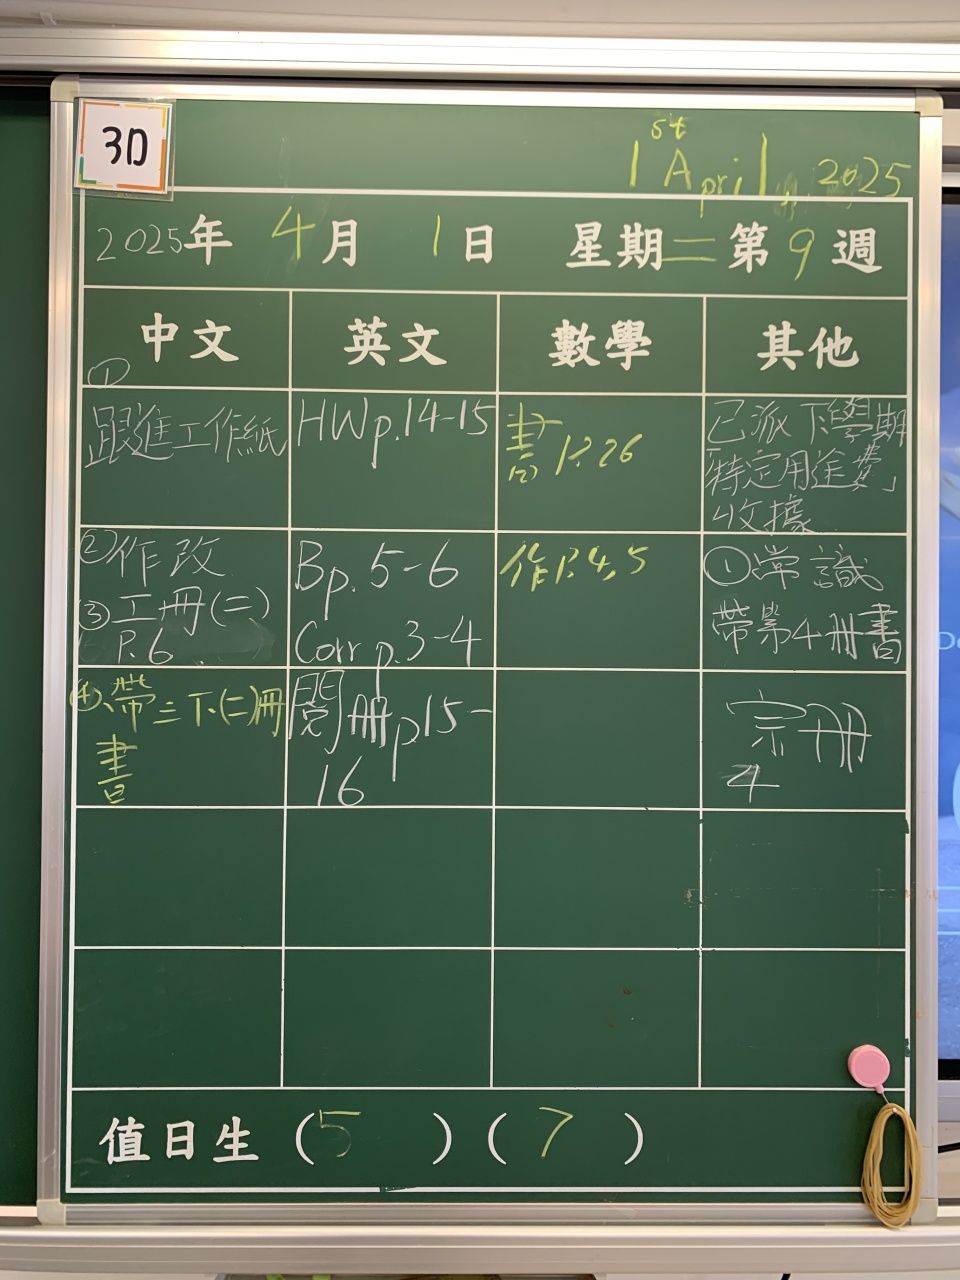 3D
1st April, 2025
2025年 4月 1日 星期二 第9週
中文 英文 數學 其他
①
跟進工作紙
HW p.14-15
書 P.26
已派下學期
特定用途費」
收據
②作改
③工冊(二)
P.6
Bp. 5-6
Corr p.3-4
作P.4,5
①常識
帶第4冊書
④帶三下(二)冊
書
閱冊p15-
16
宗冊
4
值日生 (5) (7)